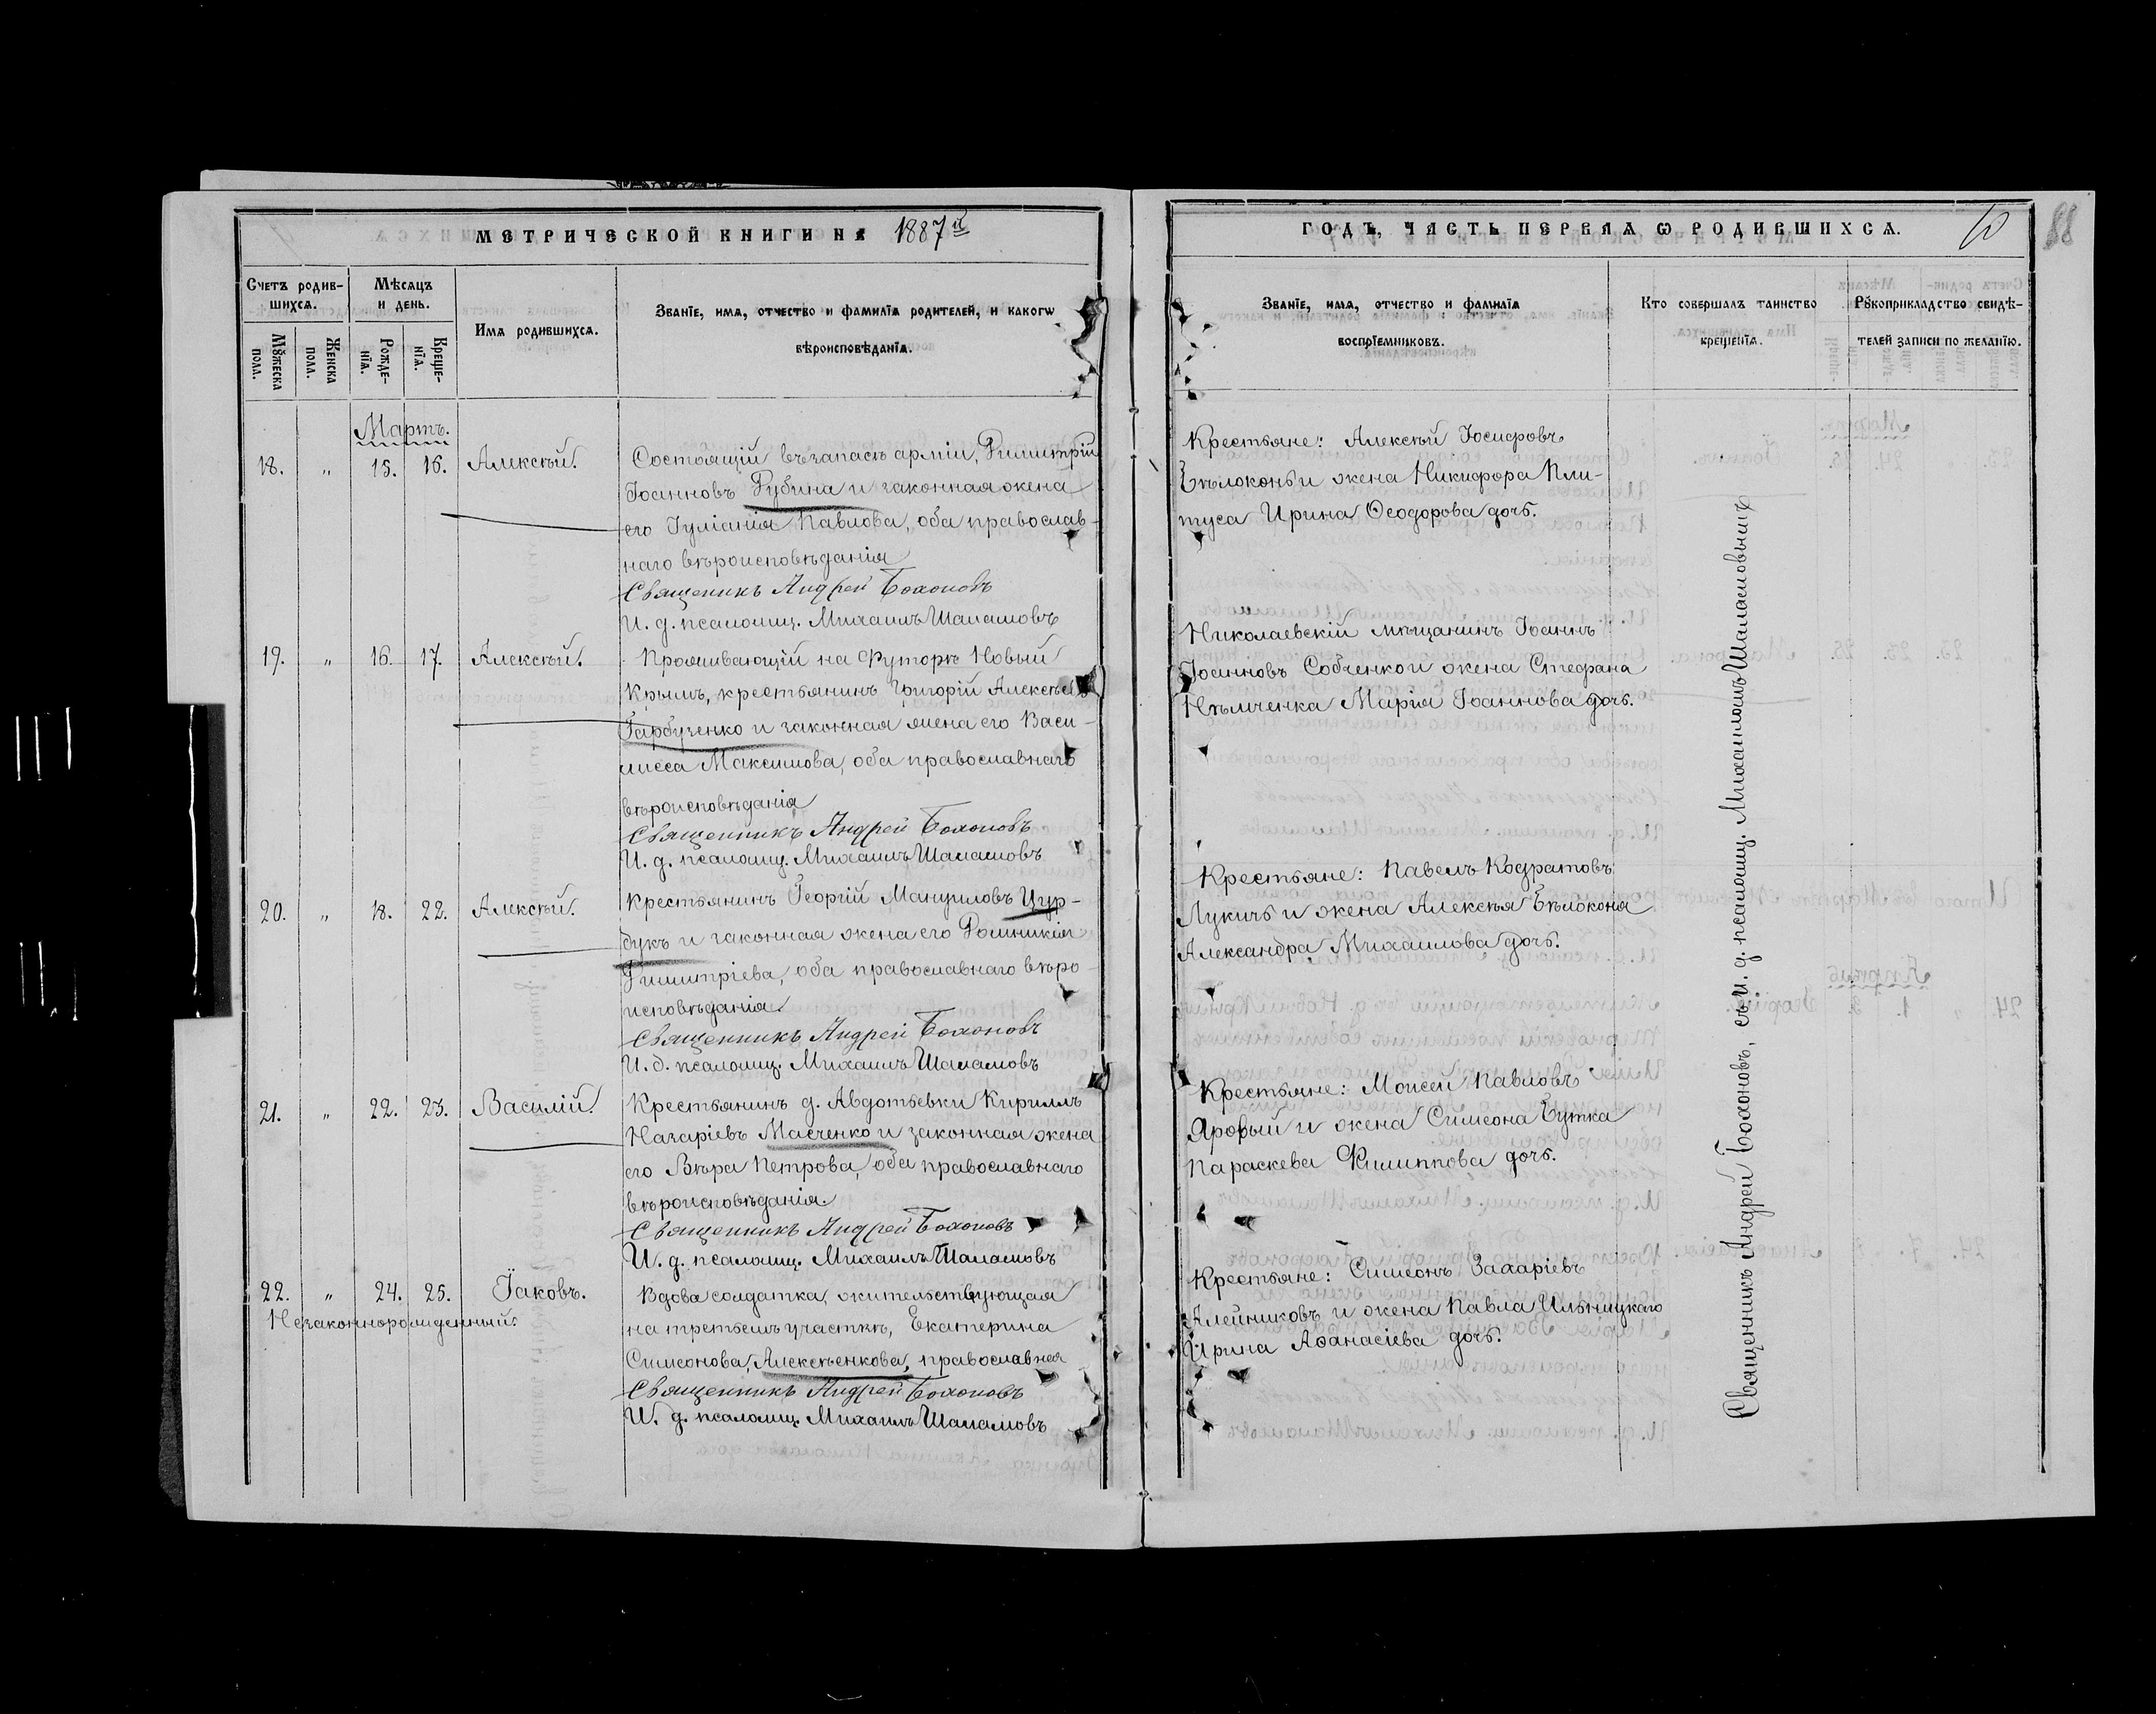 МЕТРИЧЕСКОЙ КНИГИ НА 1887й
Счетъ родив-
шихсѧ.
Мѣсѧцъ
и день.
Имѧ родившихсѧ.
Званїе, имѧ, отчество и фамилїѧ родителей, и какогѡ
вѣроисповѣданїѧ.
Мꙋжеска
пола.
Женска
пола.
Рожде-
нїѧ.
Креще-
нїѧ.
Мартъ.
18. " 15. 16. Алексѣй.
Состоящій въ запасѣ арміи, Димитрій
Іоанновъ Рубина и законная жена
его Іуліанія Павлова, оба православ-
наго вѣроисповѣданія
Священикъ Андрей Бохоновъ
И. д. псаломщ. Михаилъ Шаламовъ
19. " 16. 17. Алексѣй.
Проживающій на Футорѣ Новый
Крымъ, крестьянинъ Григорій Алексѣевъ
Гарбузенко и законная жена его Васи-
лисса Максимова, оба православнаго
вѣроисповѣданія
Священникъ Андрей Бохоновъ
И. д. псаломщ. Михаилъ Шаламовъ
20. " 18. 22. Алексѣй.
Крестьянинъ Георгій Мануиловъ Цур-
букъ и законная жена его Домникія
Димитріева, оба православнаго вѣро-
исповѣданія.
Священникъ Андрей Бохоновъ
И. д. псаломщ. Михаилъ Шаламовъ
21. " 22. 23. Василій.
Крестьянинъ д. Авдотьевки Кириллъ
Назаріевъ Масченко и законная жена
его Вѣра Петрова, оба православнаго
вѣроисповѣданія.
Священникъ Андрей Бохоновъ
И. д. псаломщ. Михаилъ Шаламовъ
22. " 24. 25. Іаковъ.
Незаконнорожденный.
Вдова солдатка, жительствующая
на третьемъ участкѣ, Екатерина
Симеонова, Алексѣенкова, православная
Священникъ Андрей Бохоновъ
И. д. псаломщ. Михаилъ Шаламовъ
ГОДЪ, ЧАСТЬ ПЕРВАѦ Ѡ РОДИВШИХСѦ.
10
88
Званїе, имѧ, отчество и фамилїѧ
воспрїемниковъ.
Кто совершалъ таинство
крещенїѧ.
Рꙋкоприкладство свидѣ-
телей записи по желанїю.
Крестьяне: Алексѣй Іосифовъ
Бѣлоконь и жена Никифора Пли-
туса Ирина Ѳеодорова дочь.
Николаевскій мѣщанинъ Іоаннъ
Іоанновъ Собченко и жена Стефана
Нѣмченка Марія Іоаннова дочь.
Крестьяне: Павелъ Кодратовъ
Лукичъ и жена Алексѣя Бѣлоконя
Александра Михаилова дочь.
Крестьяне: Моисей Павловъ
Яровый и жена Симеона Бутка
Параскева Филиппова дочь.
Крестьяне: Симеонъ Захаріевъ
Алейниковъ и жена Павла Ильницкаго
Ирина Аѳанасіева дочь.
Священникъ Андрей Бохоновъ, съ и. д. псаломщ. Михаиломъ Шаламовымъ